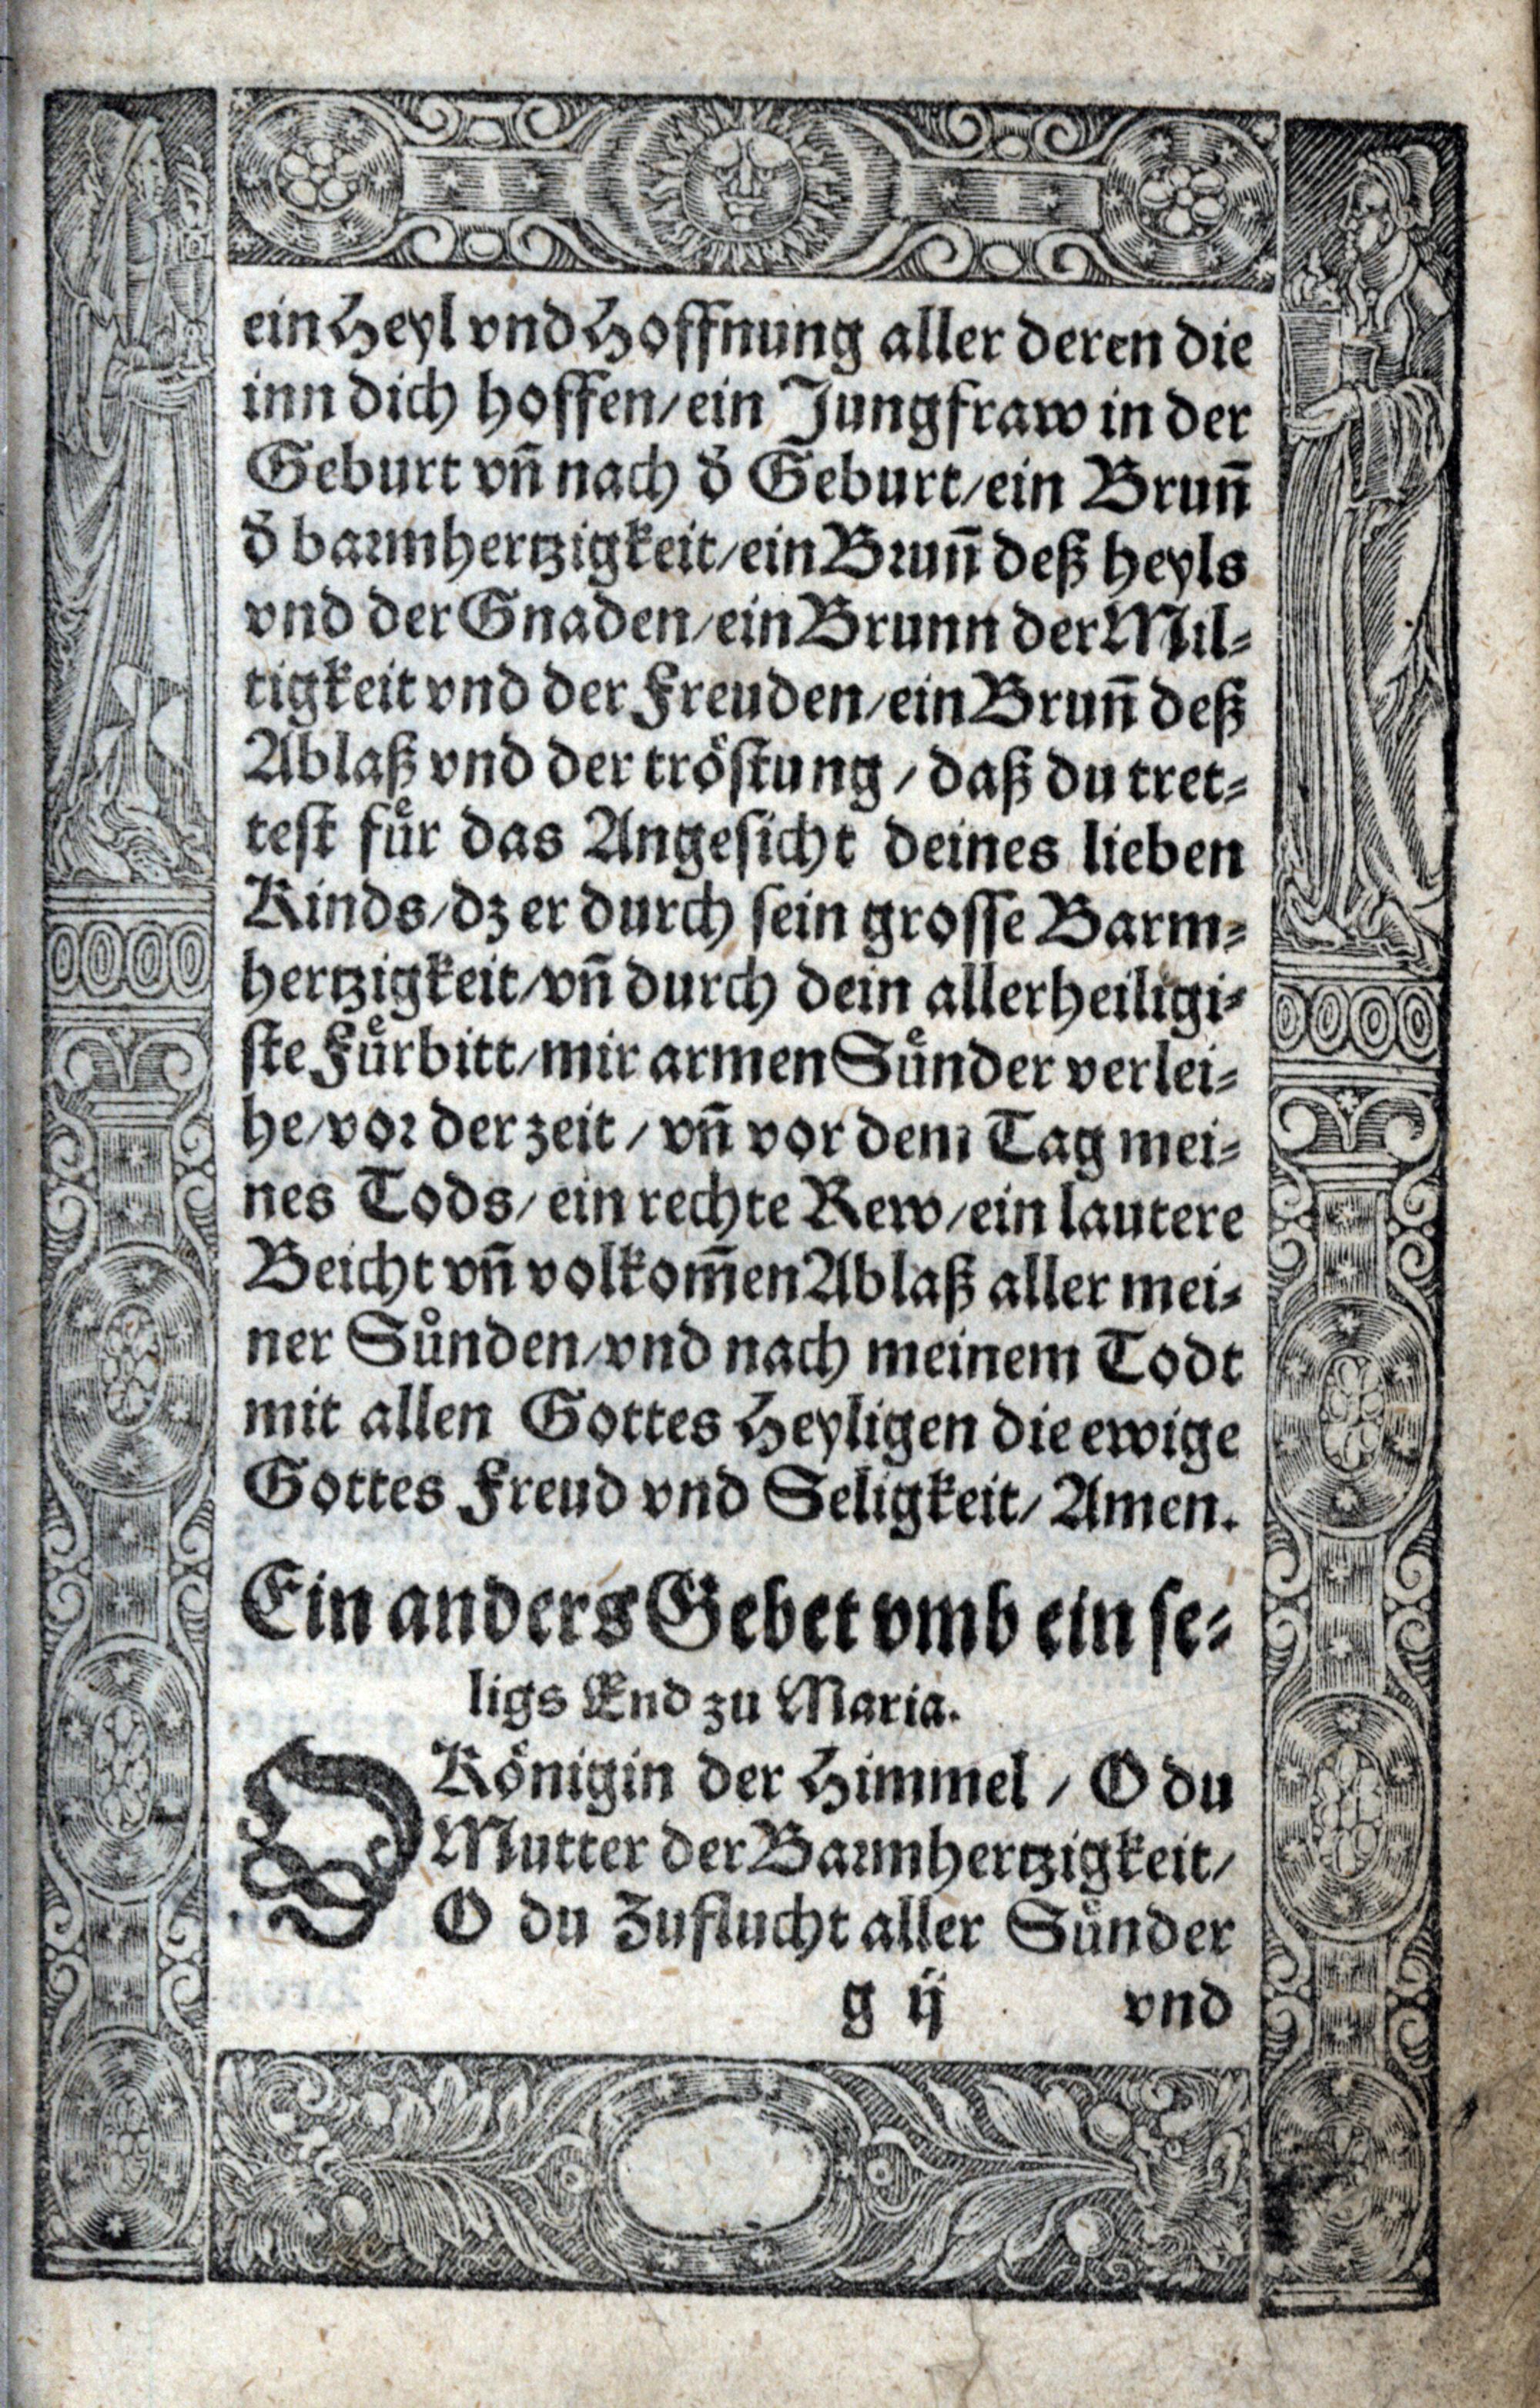 ein Heyl vnd Hoffnung aller deren die
inn dich hoffen/ein Jungfraw in der
Geburt vn̄ nach d̄ Geburt/ein Brun̄
d̄ barmhertzigkeit/ein Brun̄ deß heyls
vnd der Gnaden/ein Brunn der Mil⸗
tigkeit vnd der Freuden/ein Brun̄ deß
Ablaß vnd der troͤstung/daß du tret⸗
test fuͤr das Angesicht deines lieben
Kinds/dz er durch sein grosse Barm⸗
hertzigkeit/vn̄ durch dein allerheiligi⸗
ste Fuͤrbitt/mir armen Suͤnder verlei⸗
he/vor der zeit/vn̄ vor dem Tag mei⸗
nes Tods/ein rechte Rew/ein lautere
Beicht vn̄ volkom̄en Ablaß aller mei⸗
ner Suͤnden/vnd nach meinem Todt
mit allen Gottes Heyligen die ewige
Gottes Freud vnd Seligkeit/Amen.
Ein anders Gebet vmb ein se⸗
ligs End zu Maria.
O Koͤnigin der Himmel/O du
Mutter der Barmhertzigkeit/
O du Zuflucht aller Suͤnder
g ij vnd